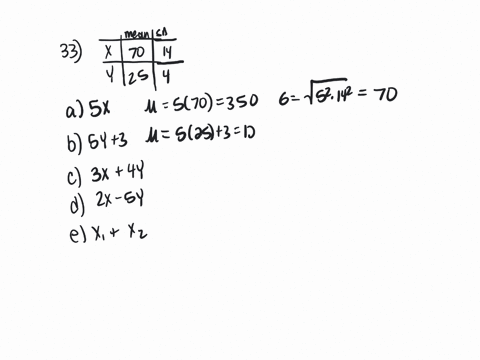 mean SD
33) X 70 14
Y 25 4
a) 5X μ = 5(70) = 350 σ = √5²·14² = 70
b) 5Y+3 μ = 5(25)+3 = 1
c) 3X + 4Y
d) 2X - 5Y
e) X₁ + X₂